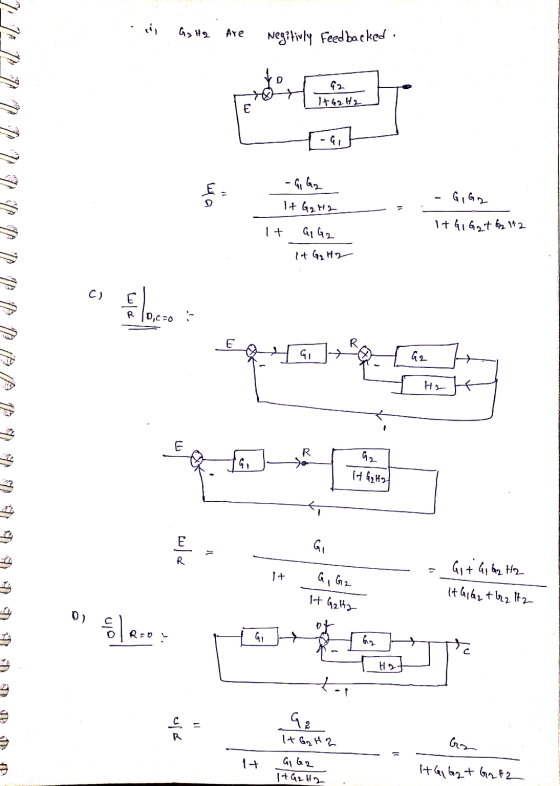 ii) G2H2 Are Negitivly Feedbacked.
D
E
G2 / 1+G2H2
-G1
E/D = (-G1G2 / 1+G2H2) / (1 + G1G2 / 1+G2H2) = -G1G2 / 1+G1G2+G2H2
C) E/R | D,C=0 :-
E - G1 R - G2
H2
1
E - G1 R G2 / 1+G2H2
1
E/R = G1 / (1 + G1G2 / 1+G2H2) = G1+G1G2H2 / 1+G1G2+G2H2
D) C/D | R=0 :-
G1 D - G2 C
H2
-1
C/R = (G2 / 1+G2H2) / (1 + G1G2 / 1+G2H2) = G2 / 1+G1G2+G2H2